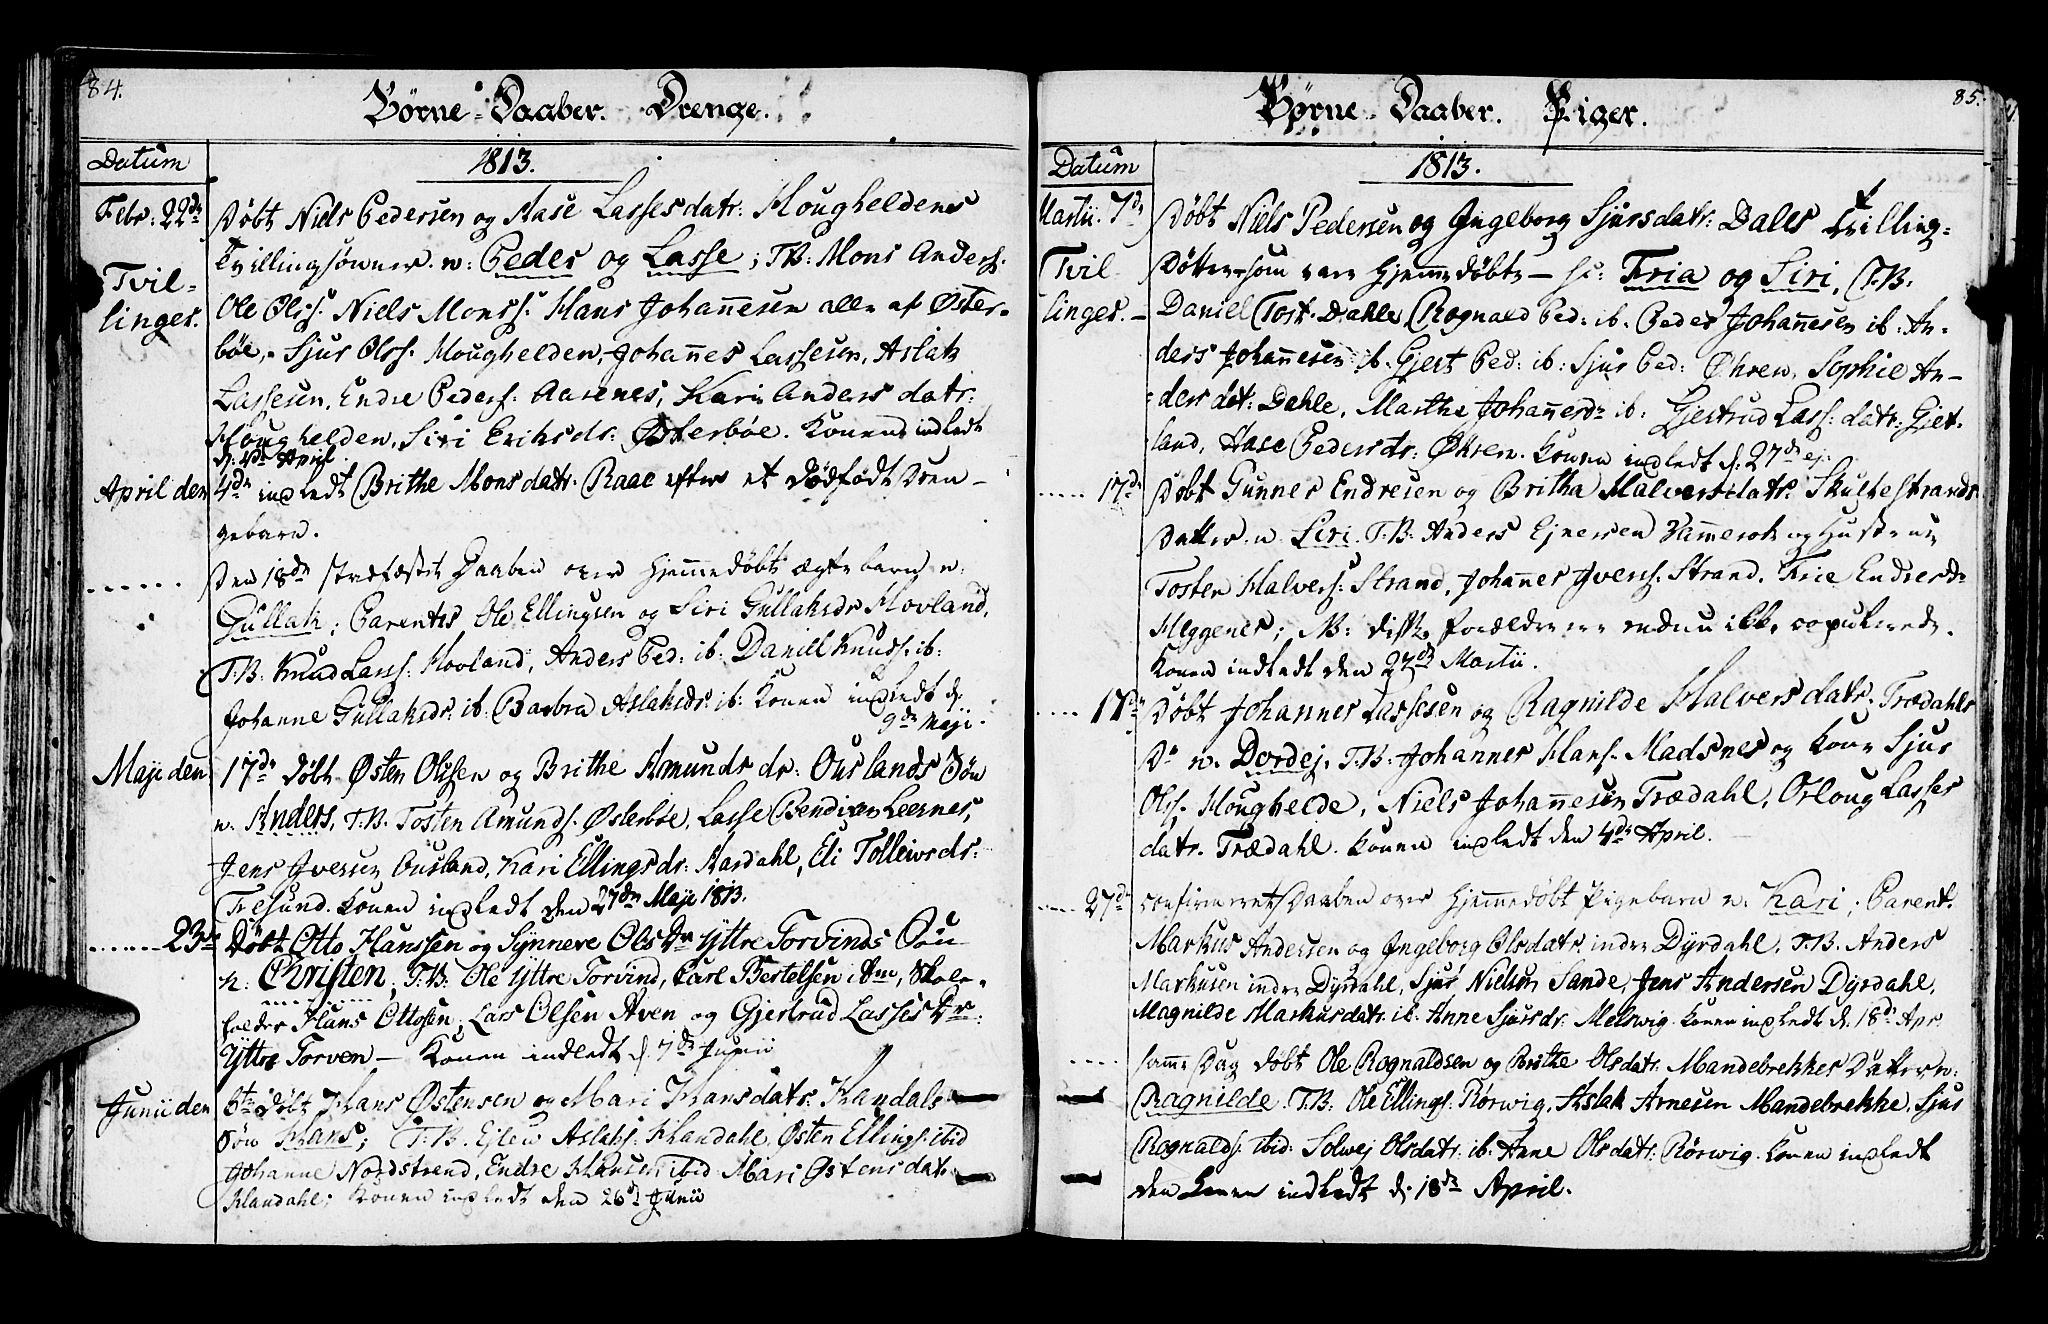 84.
Børne-Daaber. Drenge.
Datum 1813.
Febr: 22de Døbt Niels Pedersen og Aase Lassesdatr: Hougheldens
Tvillingsønner. n: Peder og Lasse; T.B: Mons Anders:
Tvil-
linger.
Ole Olss: Niels Monss: Hans Johannesen alle af Øster-
bøe, Sjur Olss: Moughelden, Johannes Lassesen, Aslak
Lassesen, Endre Peders: Aarenes, Kari Anders datr:
Houghelden, Siri Eriksdr: Østerbøe. Konen indledt
d: 4de April
April den 4de indledt Brithe Monsdatr. Raae efter et dødfødt Dren-
gebarn.
..... Den 18de stadfæstet Daaben over hjemmedøbt ægte barn n:
Gullak; Parentes Ole Ellingsen og Siri Gullaksdr Hovland,
T.B: Knud Lass: Hovland, Anders Ped: ib: Daniel Knuds: ib:
Johanne Gullaksdr: ib: Barbra Aslaksdr: ib: Konen indledt d:
9de Maji.
Maji den 17de Døbt Østen Olssen og Brithe Amundsdr: Ouslands Søn
n. Anders, T.B. Tosten Amunds: Østerbøe, Lasse Bendixen Leernes,
Jens Iversen Ousland, Kari Ellingsdr: Hardahl, Eli Tolleivsdr:
Tresund. Konen indledt den 27de Maji 1813.
....... 23de Døbt Otto Hanssen og Synneve Olsdr Yttre Torvinds Søn
n: Christen; T.B: Ole Yttre Torvind, Carl Bertelsen ibm, Skole-
holder Hans Ottosen, Lars Olsen Aven og Gjertrud Lassesdr:
Yttre Torven – Konen indledt d. 7de Junii
Junii den 6te Døbt Hans Østensen og Mari Hansdatr: Handals
Søn Hans; T.B. Ejlew Aslaks: Handahl, Østen Ellings: ibid
Johanne Nordstrend, Endre Hansen ibid Mari Østensdatr
Handahl; Konen indledt den 26de Junii
85.
Børne-Daaber. Piger.
Datum 1813.
Martii. 7de Døbt Niels Pedersen og Ingeborg Sjursdatr: Dales tvilling-
Tvil- Døttre som vare hjemmedøbte – sc: Fria og Siri, T.B.
linger. – Daniel Tost. Dahle, Rognald Ped: ib. Peder Johannesen ib: An-
ders Johannesen ib. Gjert Ped: ib: Sjur Ped: Øhren, Sophie An-
dersdat: Dahle, Marthe Johannesdr ib: Gjertrud Lass: datr: Gjet-
land, Aase Pedersdr: Øhren. Konen indledt d. 27de ej.
..... 17de Døbt Gunner Endresen og Britha Halversdatr. Skultestrands
Datter. n. Siri. T.B: Anders Ejnersen Vammerok og Hustrue
Tosten Halvers: Strand, Johannes Ivers: Strand. Frie Endresdr
Meggener; NB: disse forældre ere endnu ikke copulerede.
Konen indledt den 27de Martii.
.... 17de Døbt Johannes Lassesen og Ragnilde Halversdatr. Trædahls
Dr n. Dordej, T.B. Johannes Hans: Madsnes og Kone Sjur
Ols: Houghelde, Niels Johannesen Trædahl, Orloug Lasses
datr. Trædahl. Konen indledt den 4de April.
.... 27de confirmeret Daaben over hjemmedøbt Pigebarn n: Kari; Parent.
Markus Andersen og Ingeborg Olsdatr. indre Dyrdahl, T.B. Anders
Markusen indre Dyrdahl, Sjur Nielsen Sande, Jens Andersen Dyrdahl,
Magnilde Markusdatr: ib. Anne Sjursdr: Melswig. Konen indledt d. 18de Apr.
.... samme Dag døbt Ole Rognaldsen og Brithe Olsdatr: Mandebrekkes Datter n:
Ragnilde. T.B: Ole Ellings: Rørwig, Aslak Arnesen Mandebrekke, Sjur
Rognalds: ibid: Solwej Olsdatr: ib: Anne Olsdatr: Rørwig. Konen indledt
den Konen indledt d. 18de April.